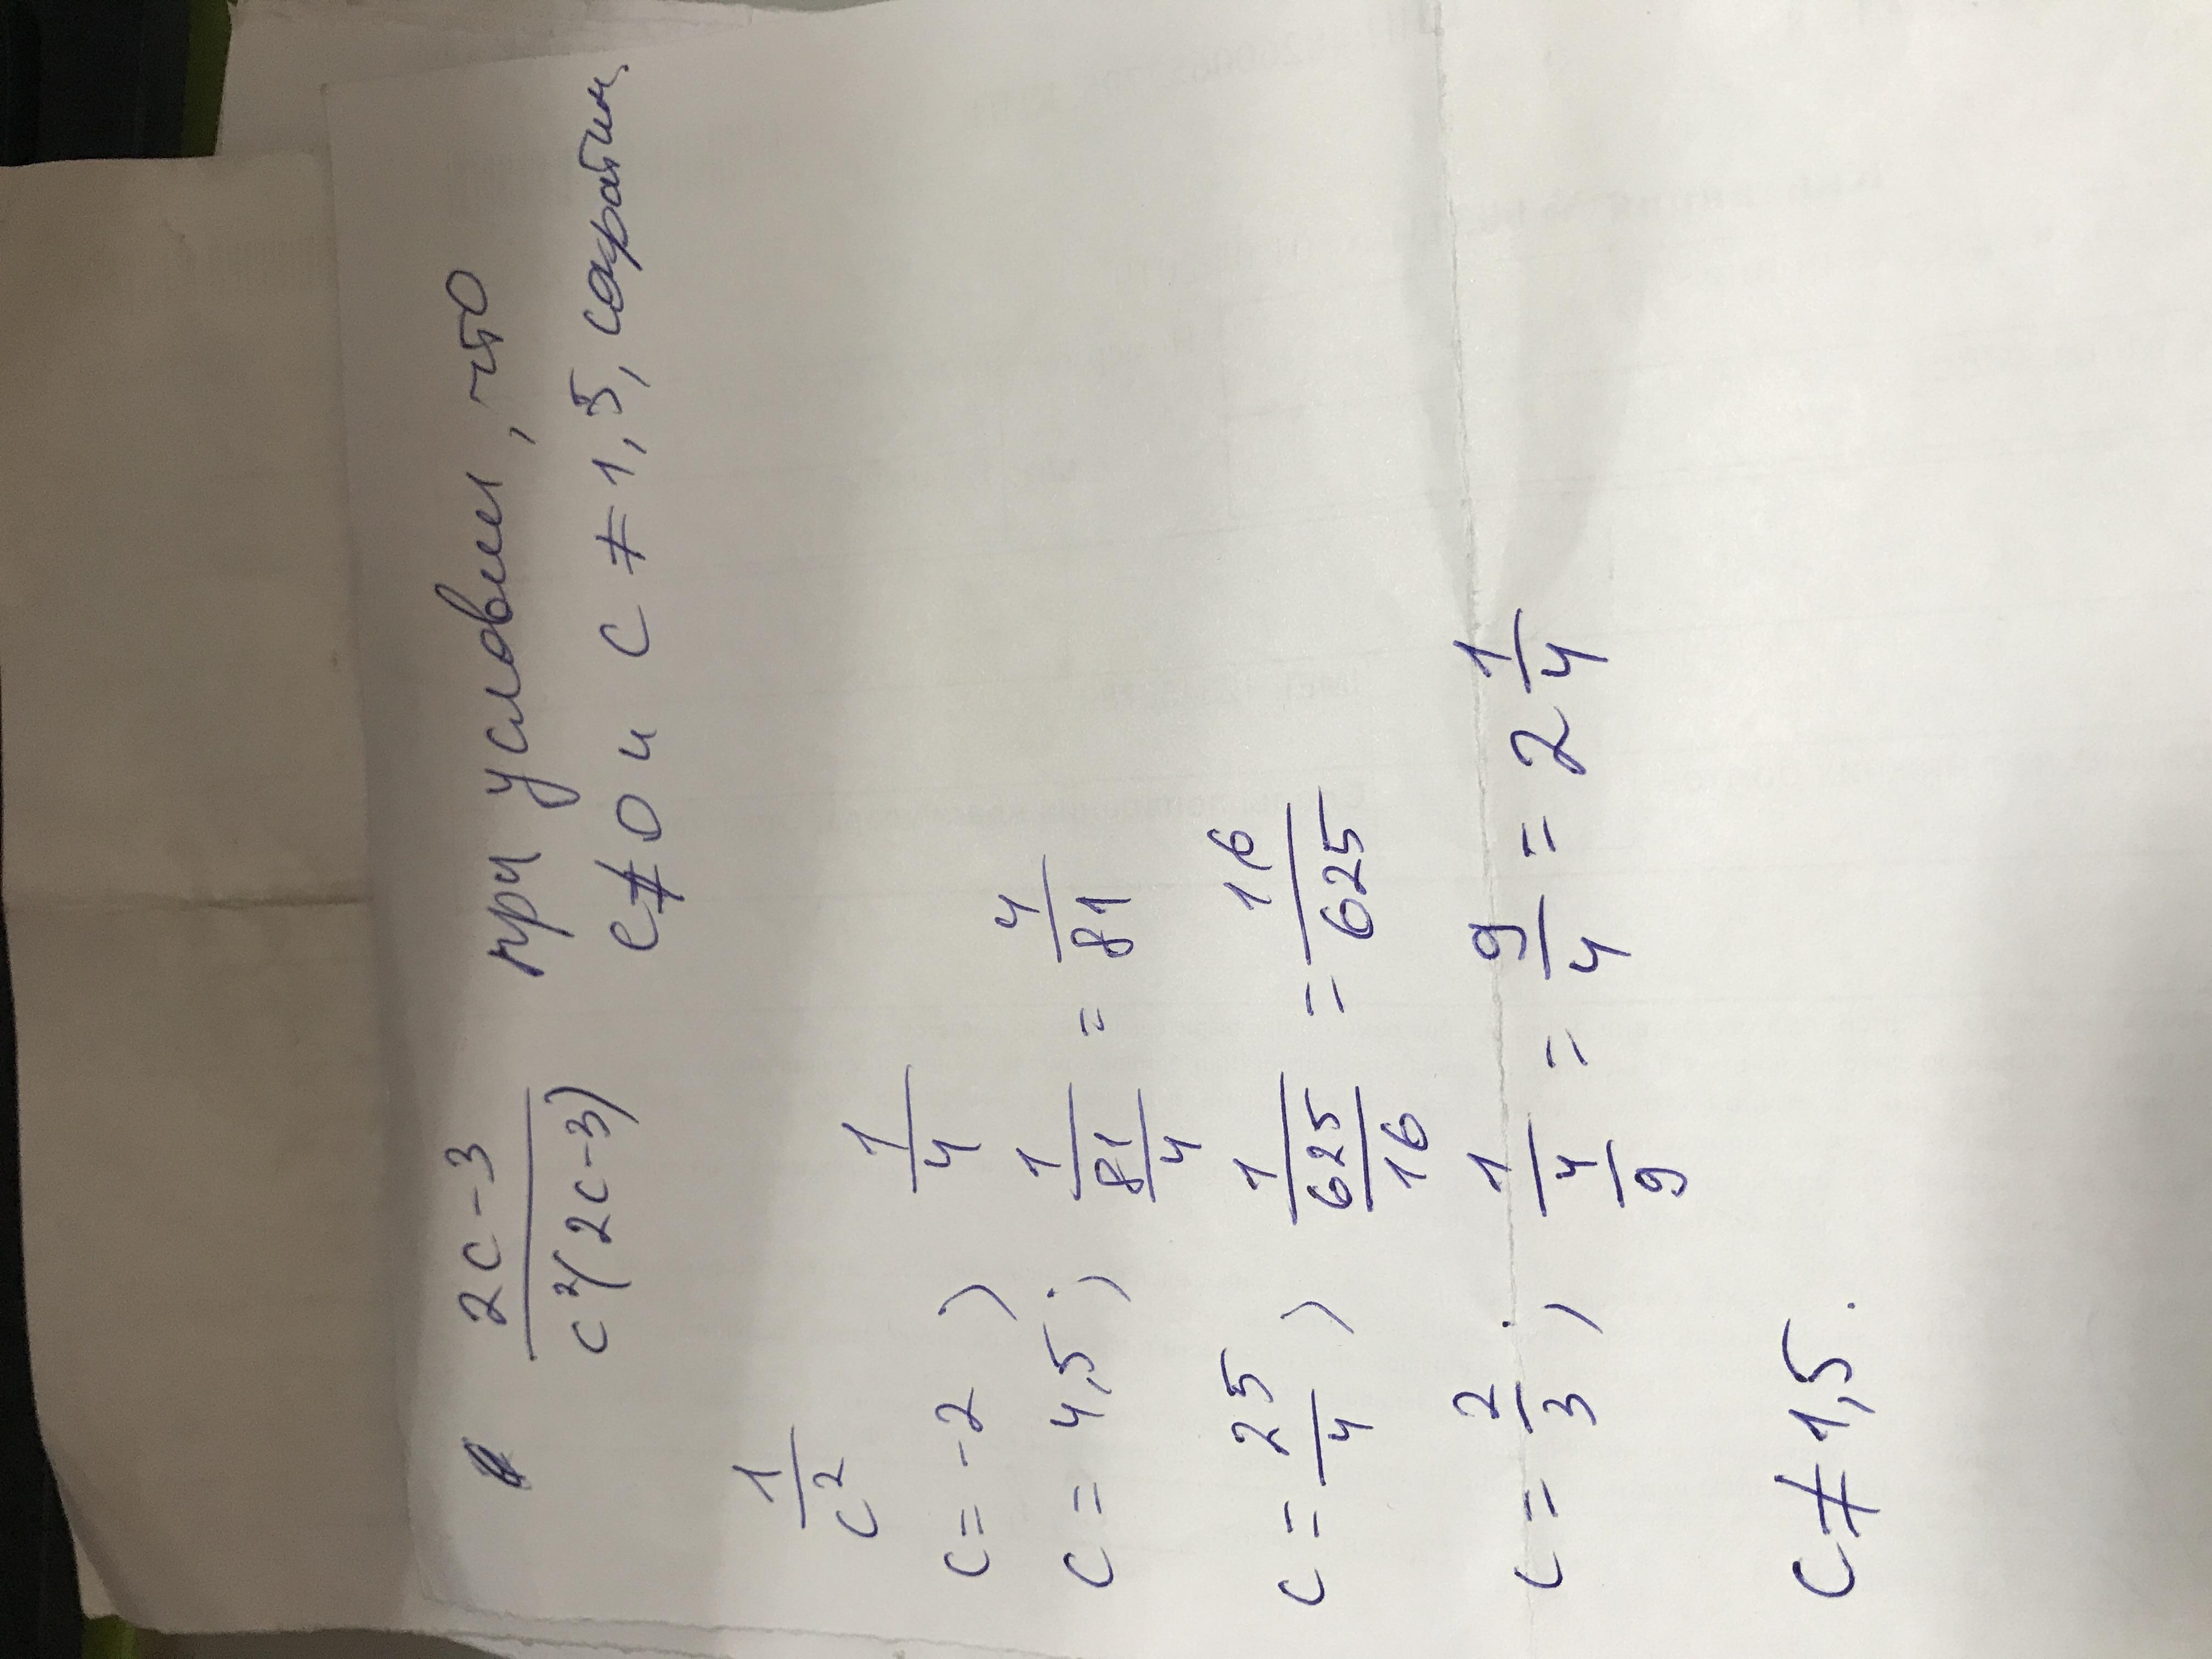 (2c-3)/(c²(2c-3)) при условии, что
c≠0 и c ≠ 1,5, сократим.
1/c²
c = -2 ; 1/4
c = 4,5 ; 1/(81/4) = 4/81
c = 25/4 ; 1/(625/16) = 16/625
c = 2/3 ; 1/(4/9) = 9/4 = 2 1/4
c ≠ 1,5.